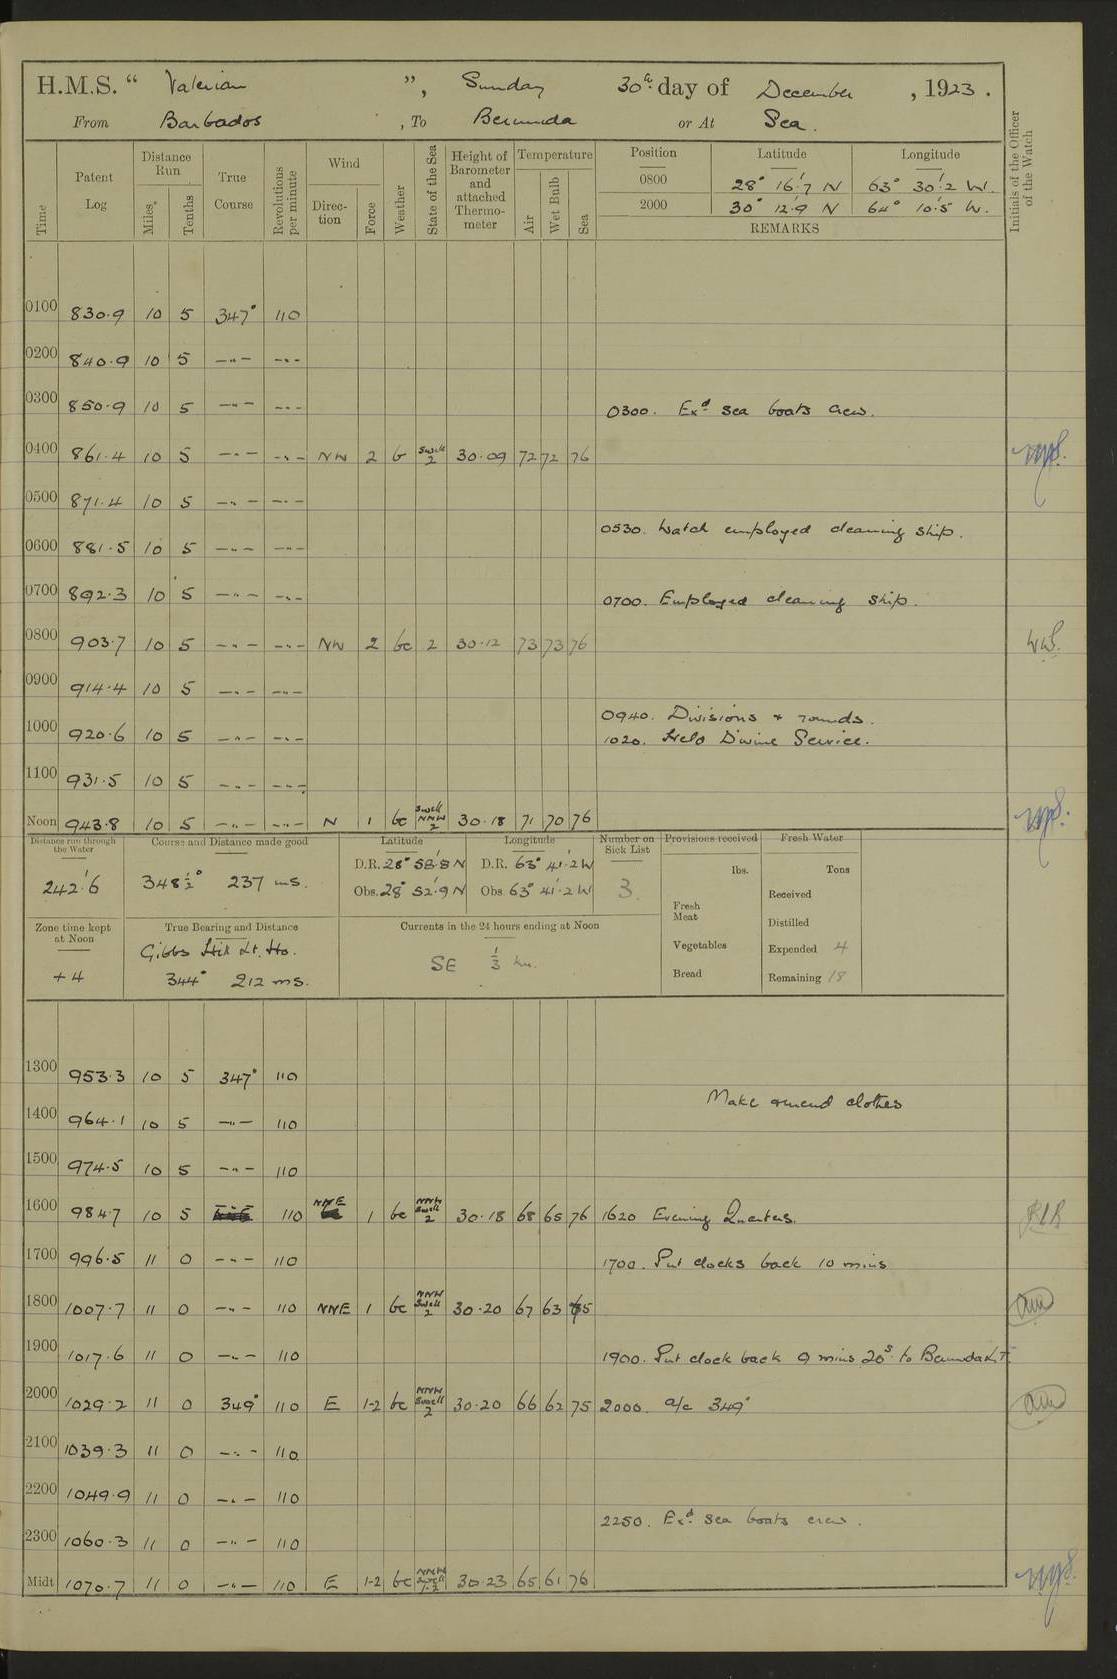 H.M.S. “ Valerian ”, Sunday 30th day of December , 1923 .
From Barbados , To Bermuda or At Sea .
Time
Patent Log
Distance Run
Miles
Tenths
True Course
Revolutions per minute
Wind
Direction
Force
Weather
State of the Sea
Height of Barometer and attached Thermometer
Temperature
Air
Wet Bulb
Sea
Position Latitude Longitude
0800 28° 16'.7 N 63° 30'.2 W.
2000 30° 12'.9 N 64° 10'.5 W.
REMARKS
Initials of the Officer of the Watch
0100 830.9 10 5 347° 110
0200 840.9 10 5 —"— —"—
0300 850.9 10 5 —"— —"— 0300. Exd sea boats crew.
0400 861.4 10 5 —"— —"— NW 2 b Swell 2 30.09 72 72 76
0500 871.4 10 5 —"— —"—
0530. Watch employed cleaning ship.
0600 881.5 10 5 —"— —"—
0700 892.3 10 5 —"— —"— 0700. Employed cleaning ship.
0800 903.7 10 5 —"— —"— NW 2 bc 2 30.12 73 73 76
0900 914.4 10 5 —"— —"—
0940. Divisions + rounds.
1000 920.6 10 5 —"— —"— 1020. Held Divine Service.
1100 931.5 10 5 —"— —"—
Noon 943.8 10 5 —"— —"— N 1 bc Swell NNW 2 30.18 71 70 76
Distance run through the Water
242'.6
Course and Distance made good
348½° 237 ms.
Latitude
D.R. 28° 58'.8 N
Obs. 28° 52'.9 N
Longitude
D.R. 63° 41'.2 W
Obs. 63° 41'.2 W
Number on Sick List
3
Provisions received
lbs.
Fresh Meat
Vegetables
Bread
Fresh Water
Tons
Received
Distilled
Expended 4
Remaining 18
Zone time kept at Noon
+ 4
True Bearing and Distance
Gibbs Hill Lt. Ho.
344° 212 ms.
Currents in the 24 hours ending at Noon
SE 1/3 kn.
1300 953.3 10 5 347° 110
Make & mend clothes
1400 964.1 10 5 —"— 110
1500 974.5 10 5 —"— 110
1600 984.7 10 5 110 NNE 1 bc NNW Swell 2 30.18 68 65 76 1620 Evening Quarters.
1700 996.5 11 0 —"— 110 1700. Put clocks back 10 mins
1800 1007.7 11 0 —"— 110 NNE 1 bc NNW Swell 2 30.20 67 63 75
1900 1017.6 11 0 —"— 110 1900. Put clock back 9 mins 20s to Bermuda L.T.
2000 1029.2 11 0 349° 110 E 1-2 bc NNW Swell 2 30.20 66 62 75 2000. a/c 349°
2100 1039.3 11 0 —"— 110
2200 1049.9 11 0 —"— 110
2250. Exd sea boats crew.
2300 1060.3 11 0 —"— 110
Midt 1070.7 11 0 —"— 110 E 1-2 bc NNW Swell 1-2 30.23 65 61 76